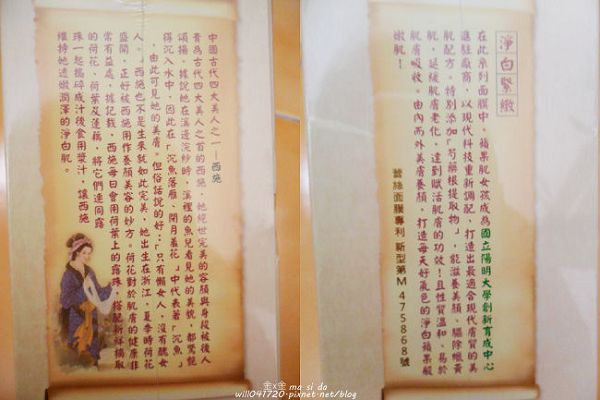 中國古代四大美人之一—西施
貴為古代四大美人之首的西施，她絕世完美的容顏與身段被後人
頌揚。據說她在溪邊浣紗時，溪裡的魚兒看見她的美貌，都驚艷
得沉入水中，因此在「沉魚落雁、閉月羞花」中代表著「沉魚」
，由此可見她的美膚。但俗話說的好：「只有懶女人，沒有醜女
人。」西施也不是生來就如此完美，她出生在浙江，夏季時荷花
盛開，正好被西施用作養顏美容的妙方。荷花對於肌膚的健康非
常有益處，據記載，西施每日會用荷葉上的露珠，搭配新鮮摘取
的荷花、荷葉及蓮藕，將它們連同露
珠一起搗碎成汁後食用漿汁，讓西施
維持她透嫩潤澤的淨白肌。
淨白緊緻
在此系列面膜中，蘋果肌女孩成為國立陽明大學創新育成中心
進駐廠商，以現代科技重新調配，打造出最適合現代膚質的美
肌配方。特別添加「芍藥根提取物」，能滋養美顏、驅除暗黃
肌，延緩肌膚老化，達到賦活肌膚的功效！且性質溫和、易於
肌膚吸收。由內而外美膚養顏，打造每天好氣色的淨白蘋果緊
嫩肌！
蕾絲面膜專利 新型第M 475868號
金x金 ma si do
will041720.pixnet.net/blog